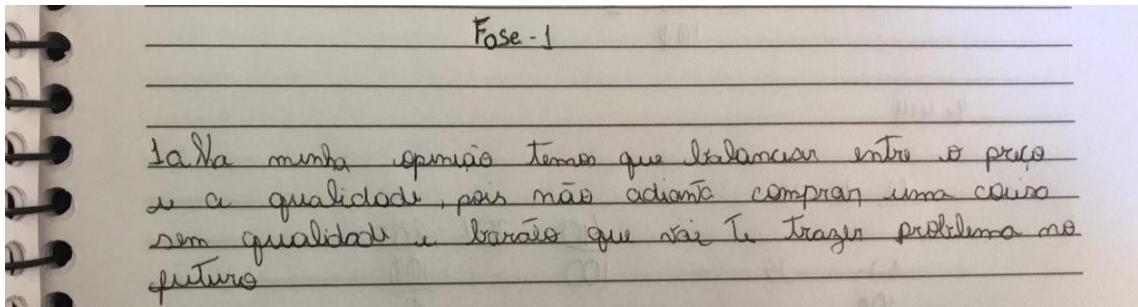 Fase-1
1a Na minha opinião temos que balanciar entre o preço
e a qualidade, pois não adianta comprar uma couso
sem qualidade e barato que vai te trazer problema no
futuro